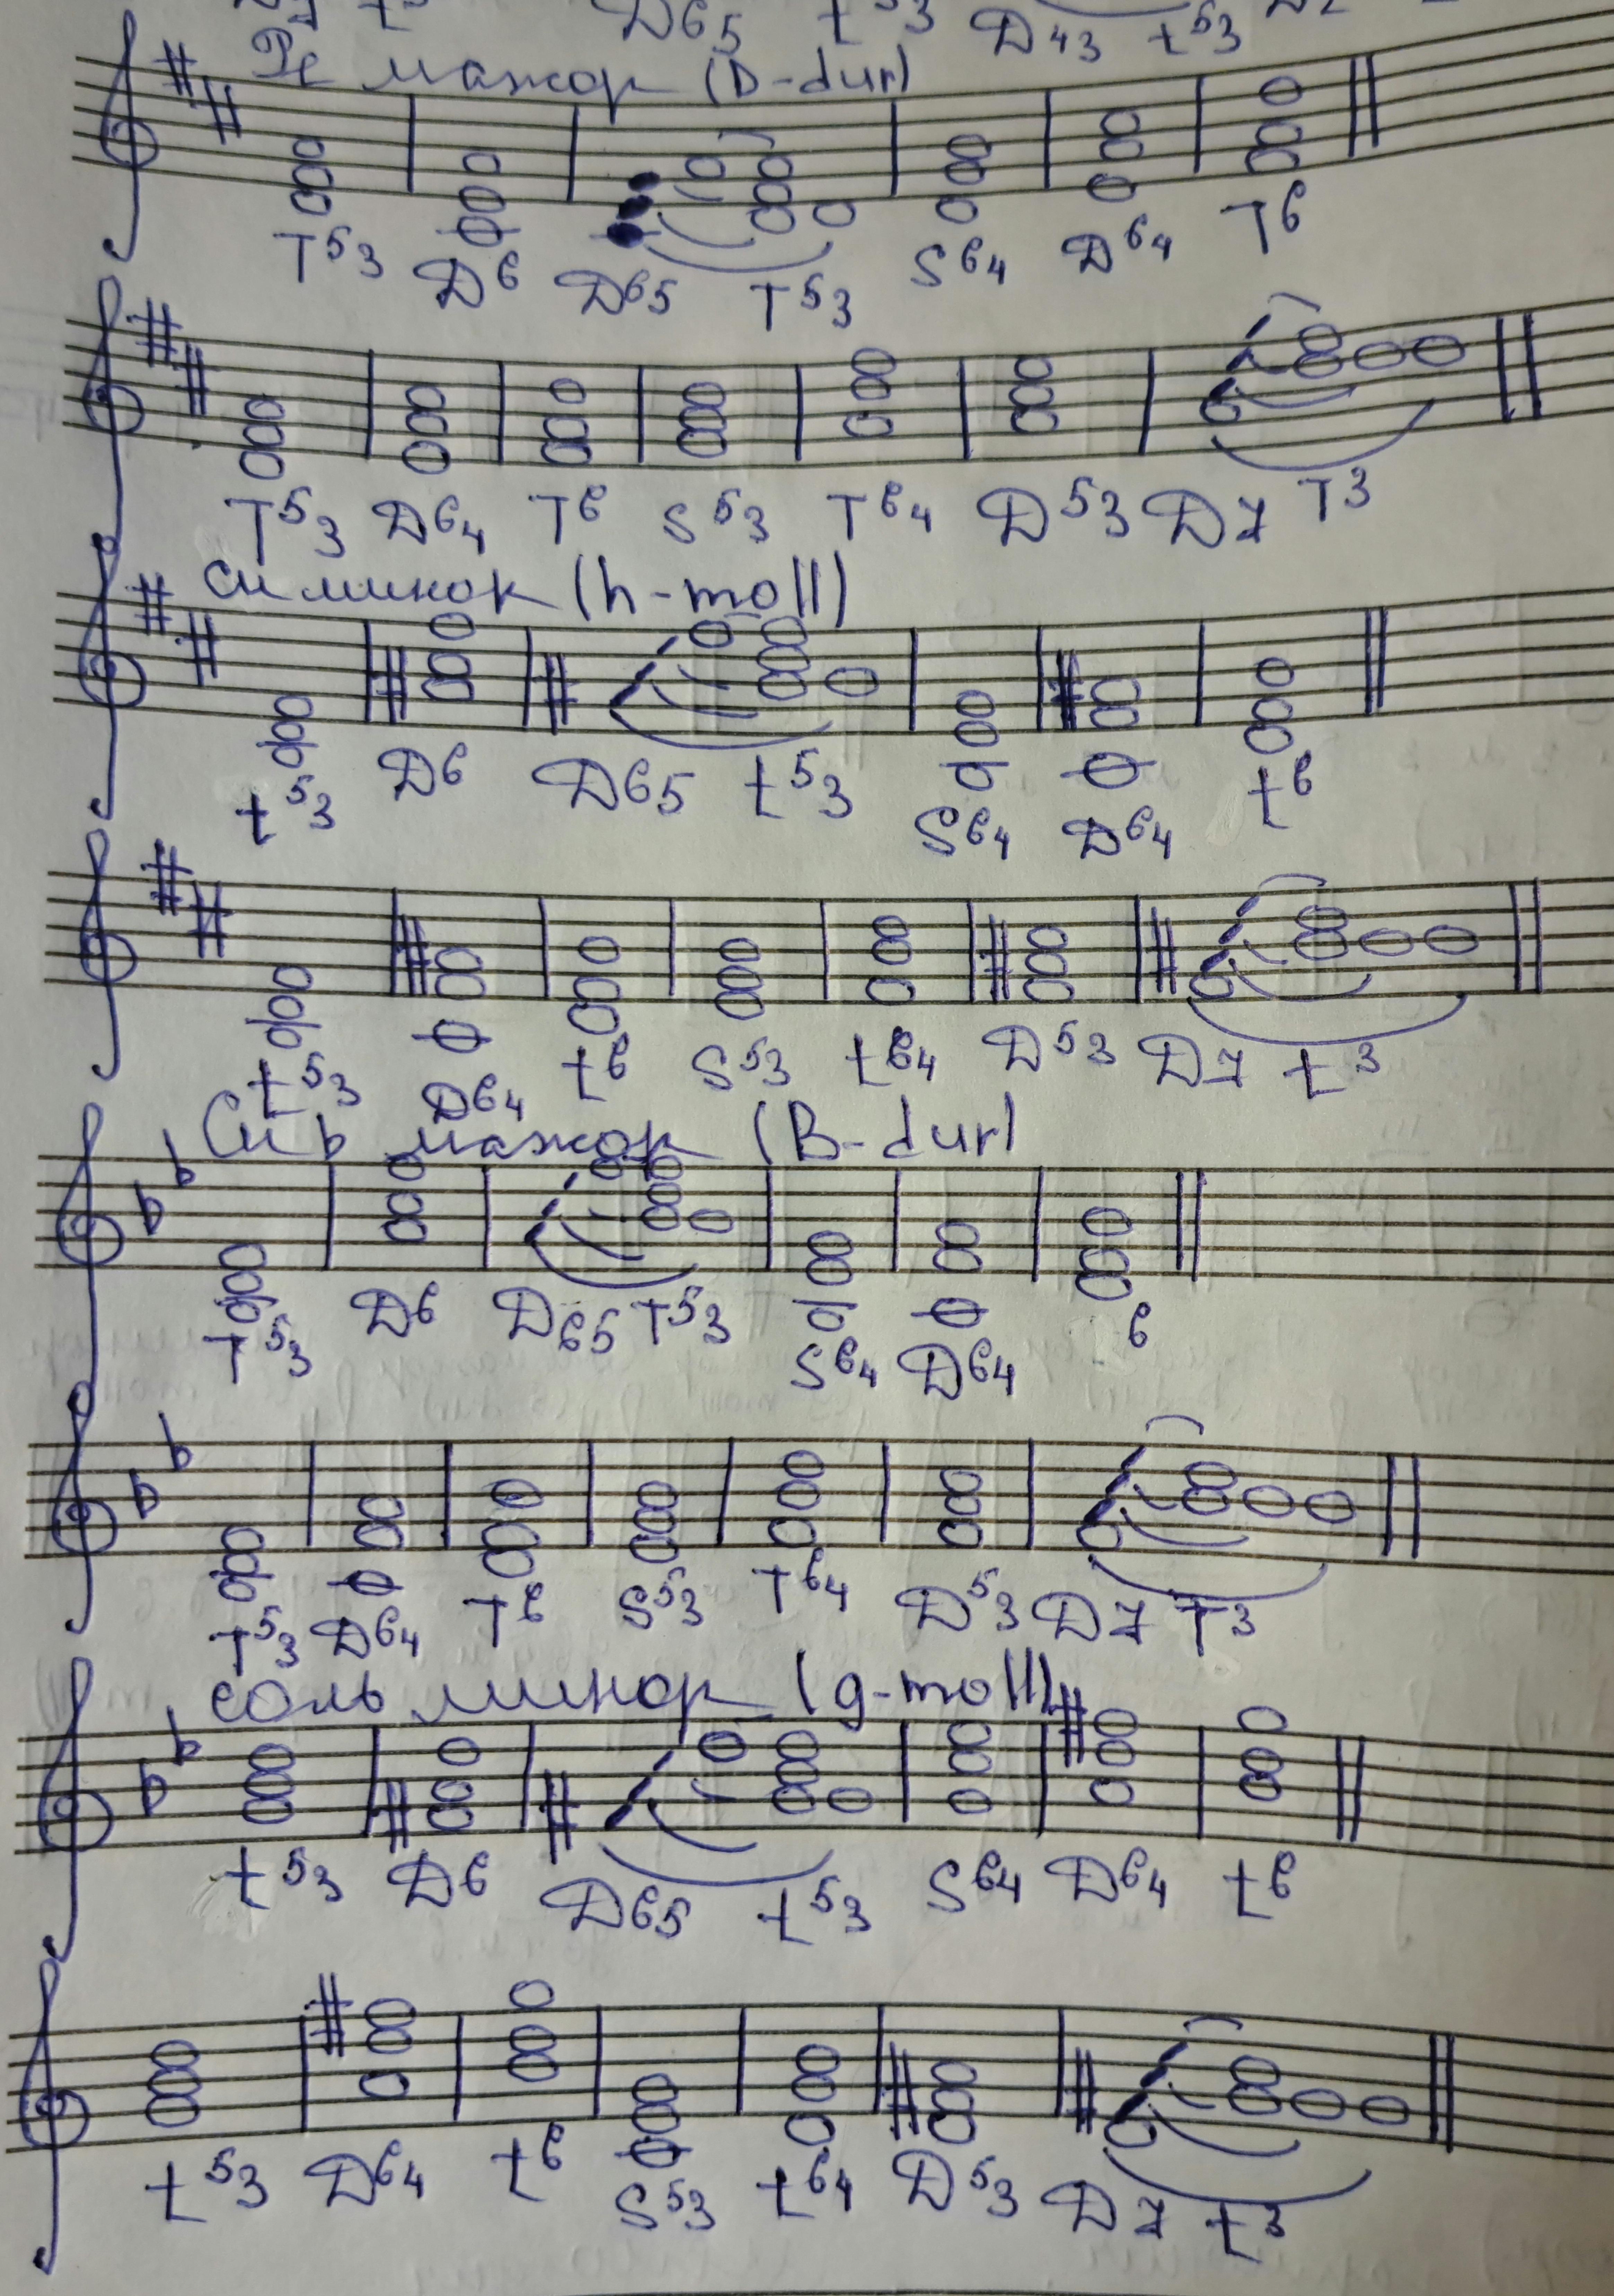 D65 t53 D43 t53
Ре мажор (D-dur)
T53 D6 D65 T53 S64 D64 T6
T53 D64 T6 S53 T64 D53 D7 T3
си минок (h-moll)
t53 D6 D65 t53 S64 D64 t6
t53 D64 t6 S53 t64 D53 D7 t3
Си ь мажор (B-dur)
T53 D6 D65 T53 S64 D64 6
T53 D64 T6 S53 T64 D53 D7 T3
соль минор (g-moll)
t53 D6 D65 t53 S64 D64 t6
t53 D64 t6 S53 t64 D53 D7 t3